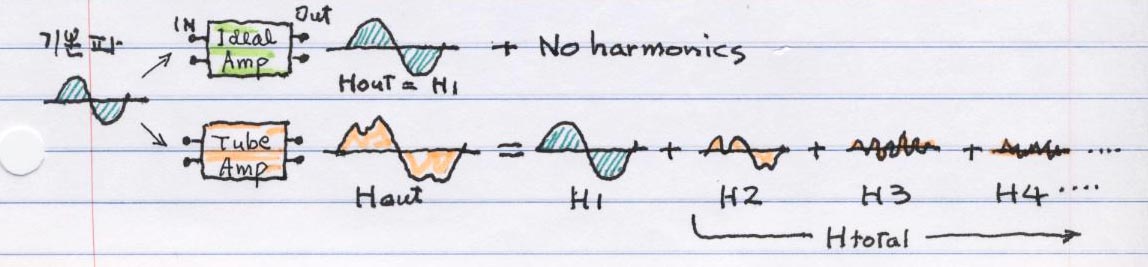 기본파
IN
Out
Ideal
Amp
Hout = H1
+ No harmonics
Tube
Amp
Hout
=
H1
+
H2
+
H3
+
H4
....
....
Htotal